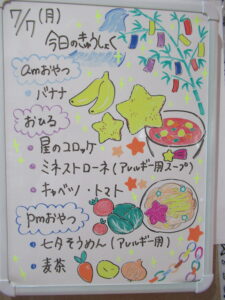 7/7(月)
今日のきゅうしょく
amおやつ
バナナ
おひる
星のコロッケ
ミネストローネ(アレルギー用スープ)
キャベツ・トマト
pmおやつ
七夕そうめん(アレルギー用)
麦茶